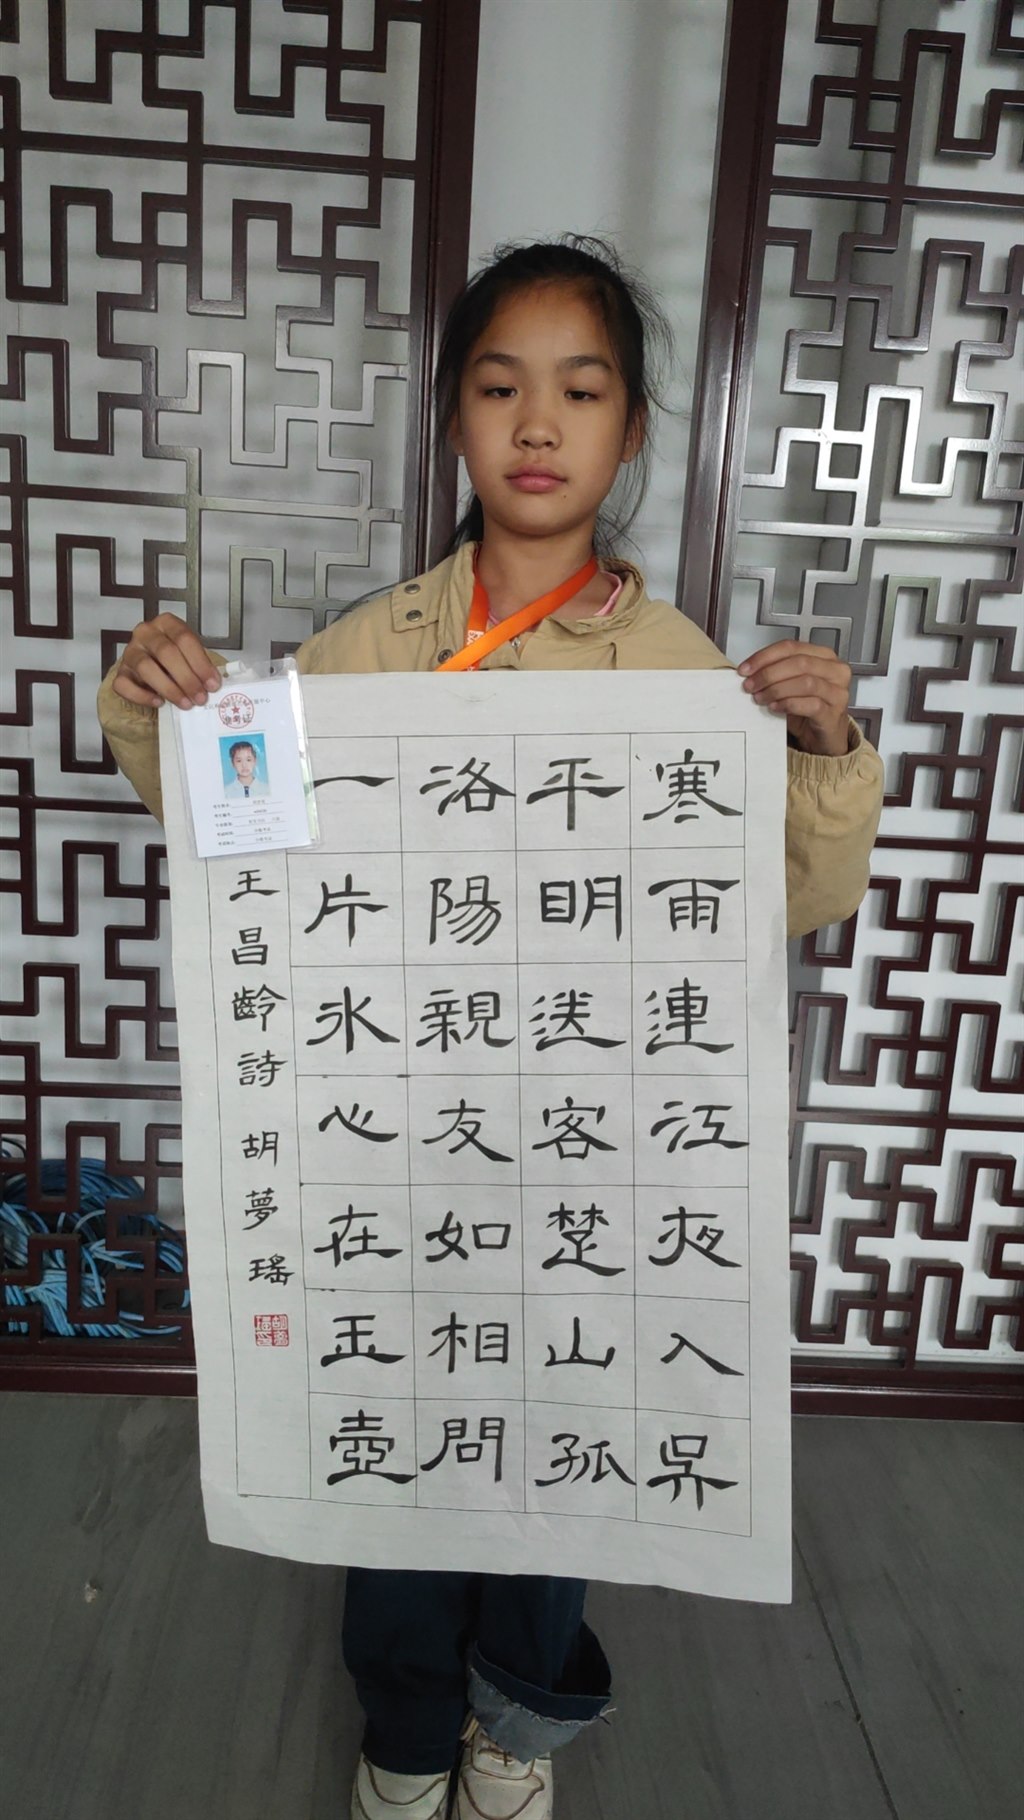 寒雨連江夜入吳
平明送客楚山孤
洛陽親友如相問
一片冰心在玉壺
王昌齡詩 胡夢瑤
准考证